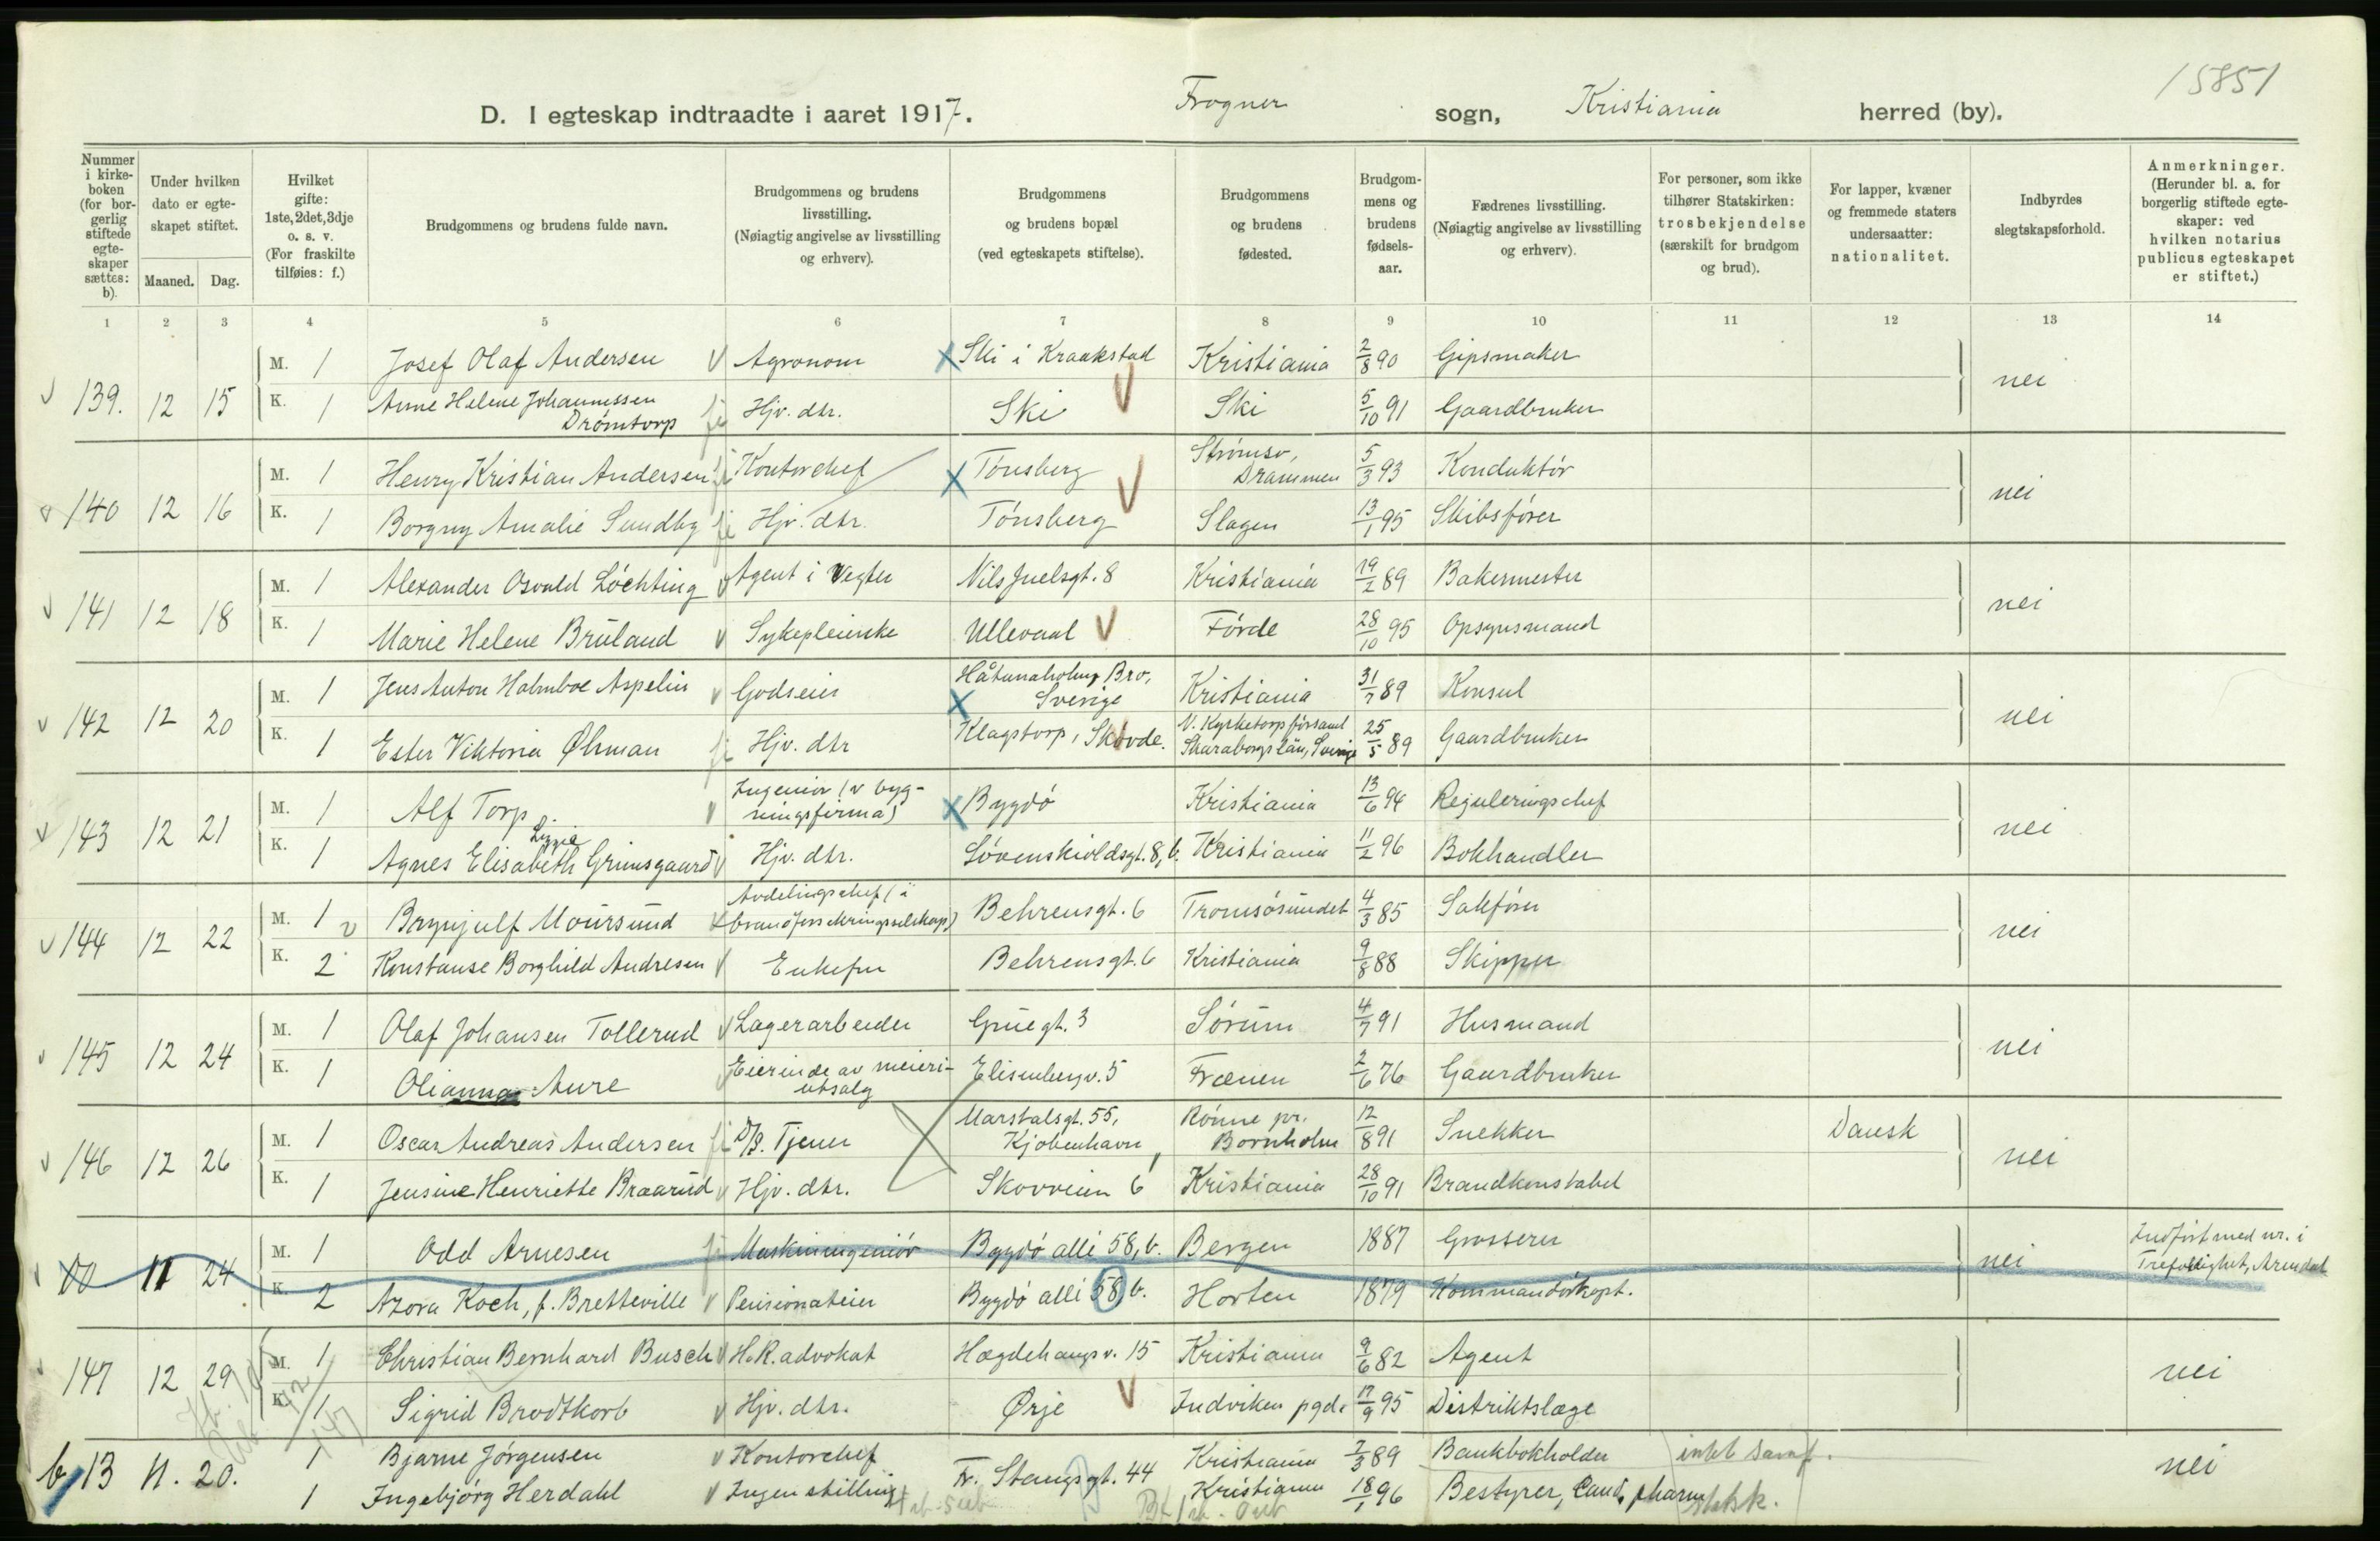 15851
D. I egteskap indtraadte i aaret 1917. Frogner sogn, Kristiania herred (by).
Nummer i kirkeboken (for borgerlig stiftede egteskaper sættes: b).
Under hvilken dato er egteskapet stiftet.
Maaned. Dag.
Hvilket gifte: 1ste, 2det, 3dje o. s. v. (For fraskilte tilføies: f.)
Brudgommens og brudens fulde navn.
Brudgommens og brudens livsstilling. (Nøiagtig angivelse av livsstilling og erhverv).
Brudgommens og brudens bopæl (ved egteskapets stiftelse).
Brudgommens og brudens fødested.
Brudgommens og brudens fødselsaar.
Fædrenes livsstilling. (Nøiagtig angivelse av livsstilling og erhverv).
For personer, som ikke tilhører Statskirken: trosbekjendelse (særskilt for brudgom og brud).
For lapper, kvæner og fremmede staters undersaatter: nationalitet.
Indbyrdes slegtskapsforhold.
Anmerkninger. (Herunder bl. a. for borgerlig stiftede egteskaper: ved hvilken notarius publicus egteskapet er stiftet.)
1 2 3 4 5 6 7 8 9 10 11 12 13 14
139. 12 15 M. 1 Josef Olaf Andersen Agronom Ski i Kraakstad Kristiania 2/8 90 Gipsmaker nei
K. 1 Anne Helene Johannessen Drømtorp Hjv. dtr. Ski Ski 5/10 91 Gaardbruker
140 12 16 M. 1 Henry Kristian Andersen Kontorchef Tønsberg Strømsø, Drammen 5/3 93 Konduktør nei
K. 1 Borgny Amalie Sundby Hjv. dtr. Tønsberg Slagen 13/1 95 Skibsfører
141 12 18 M. 1 Alexander Osvald Løchting Agent i Vegter Nils Juelsgt. 8 Kristiania 19/2 89 Bakermester nei
K. 1 Marie Helene Bruland Sykepleierske Ullevaal Førde 28/10 95 Opsynsmand
142 12 20 M. 1 Jens Anton Holmboe Aspelin Godseier Håtunaholm, Bro, Sverige Kristiania 31/7 89 Konsul nei
K. 1 Ester Viktoria Øhman Hjv. dtr Klagstorp, Skövde. V. Kyrketorp församl Skaraborgs län, Sverige 25/5 89 Gaardbruker
143 12 21 M. 1 Alf Torp Ingeniør (v bygningsfirma) Bygdø Kristiania 13/6 94 Reguleringschef nei
K. 1 Agnes Elisabeth Lizzie Grimsgaard Hjv. dtr. Løvenskioldsgt. 8, b. Kristiania 11/2 96 Bokhandler
144 12 22 M. 1 Brynjulf Moursund Avdelingschef (i brandforsekringsselskap) Behrensgt. 6 Tromsøsundet 4/3 85 Sakfører nei
K. 2 Konstanse Borghild Andresen Enkefru Behrensgt. 6 Kristiania 9/8 88 Skipper
145 12 24 M. 1 Olaf Johansen Tollerud Lagerarbeider Gruegt. 3 Sørum 4/7 91 Husmand nei
K. 1 Olianna Aure Eierinde av meieriutsalg Elisenbergv. 5 Frænen 2/6 76 Gaardbruker
146 12 26 M. 1 Oscar Andreas Andersen D/S. Tjener Marstalsgt. 55, Kjøbenhavn Rønne pr. Bornholm 12/8 91 Snekker Dansk nei
K. 1 Jensine Henriette Braarud Hjv. dtr. Skovveien 6 Kristiania 28/10 91 Brandkonstabel
00 11 24 M. 1 Odd Arnesen Maskiningeniør Bygdø allé 58, b. Bergen 1887 Grosserer nei Indført med nr. i Trefoldighet, Arendal
K. 2 Azora Koch, f. Bretteville Pensionateier Bygdø allé 58, b. Horten 1879 Kommandørkapt.
147 12 29 M. 1 Christian Bernhard Busch H.R. advokat Hægdehaugsv. 15 Kristiania 9/6 82 Agent nei
K. 1 Sigrid Brodtkorb Hjv. dtr. Ørje Indviken pgd. 17/9 95 Distriktslæge
b, 13 11. 20. 1 Bjarne Jørgensen Kontorchef Fr. Stangsgt. 44 Kristiania 7/3 89 Bankbokholder intet samf. nei
1 Ingebjørg Herdahl Ingen stilling Kristiania 18/1 96 Bestyrer, Cand. pharm Statsk.